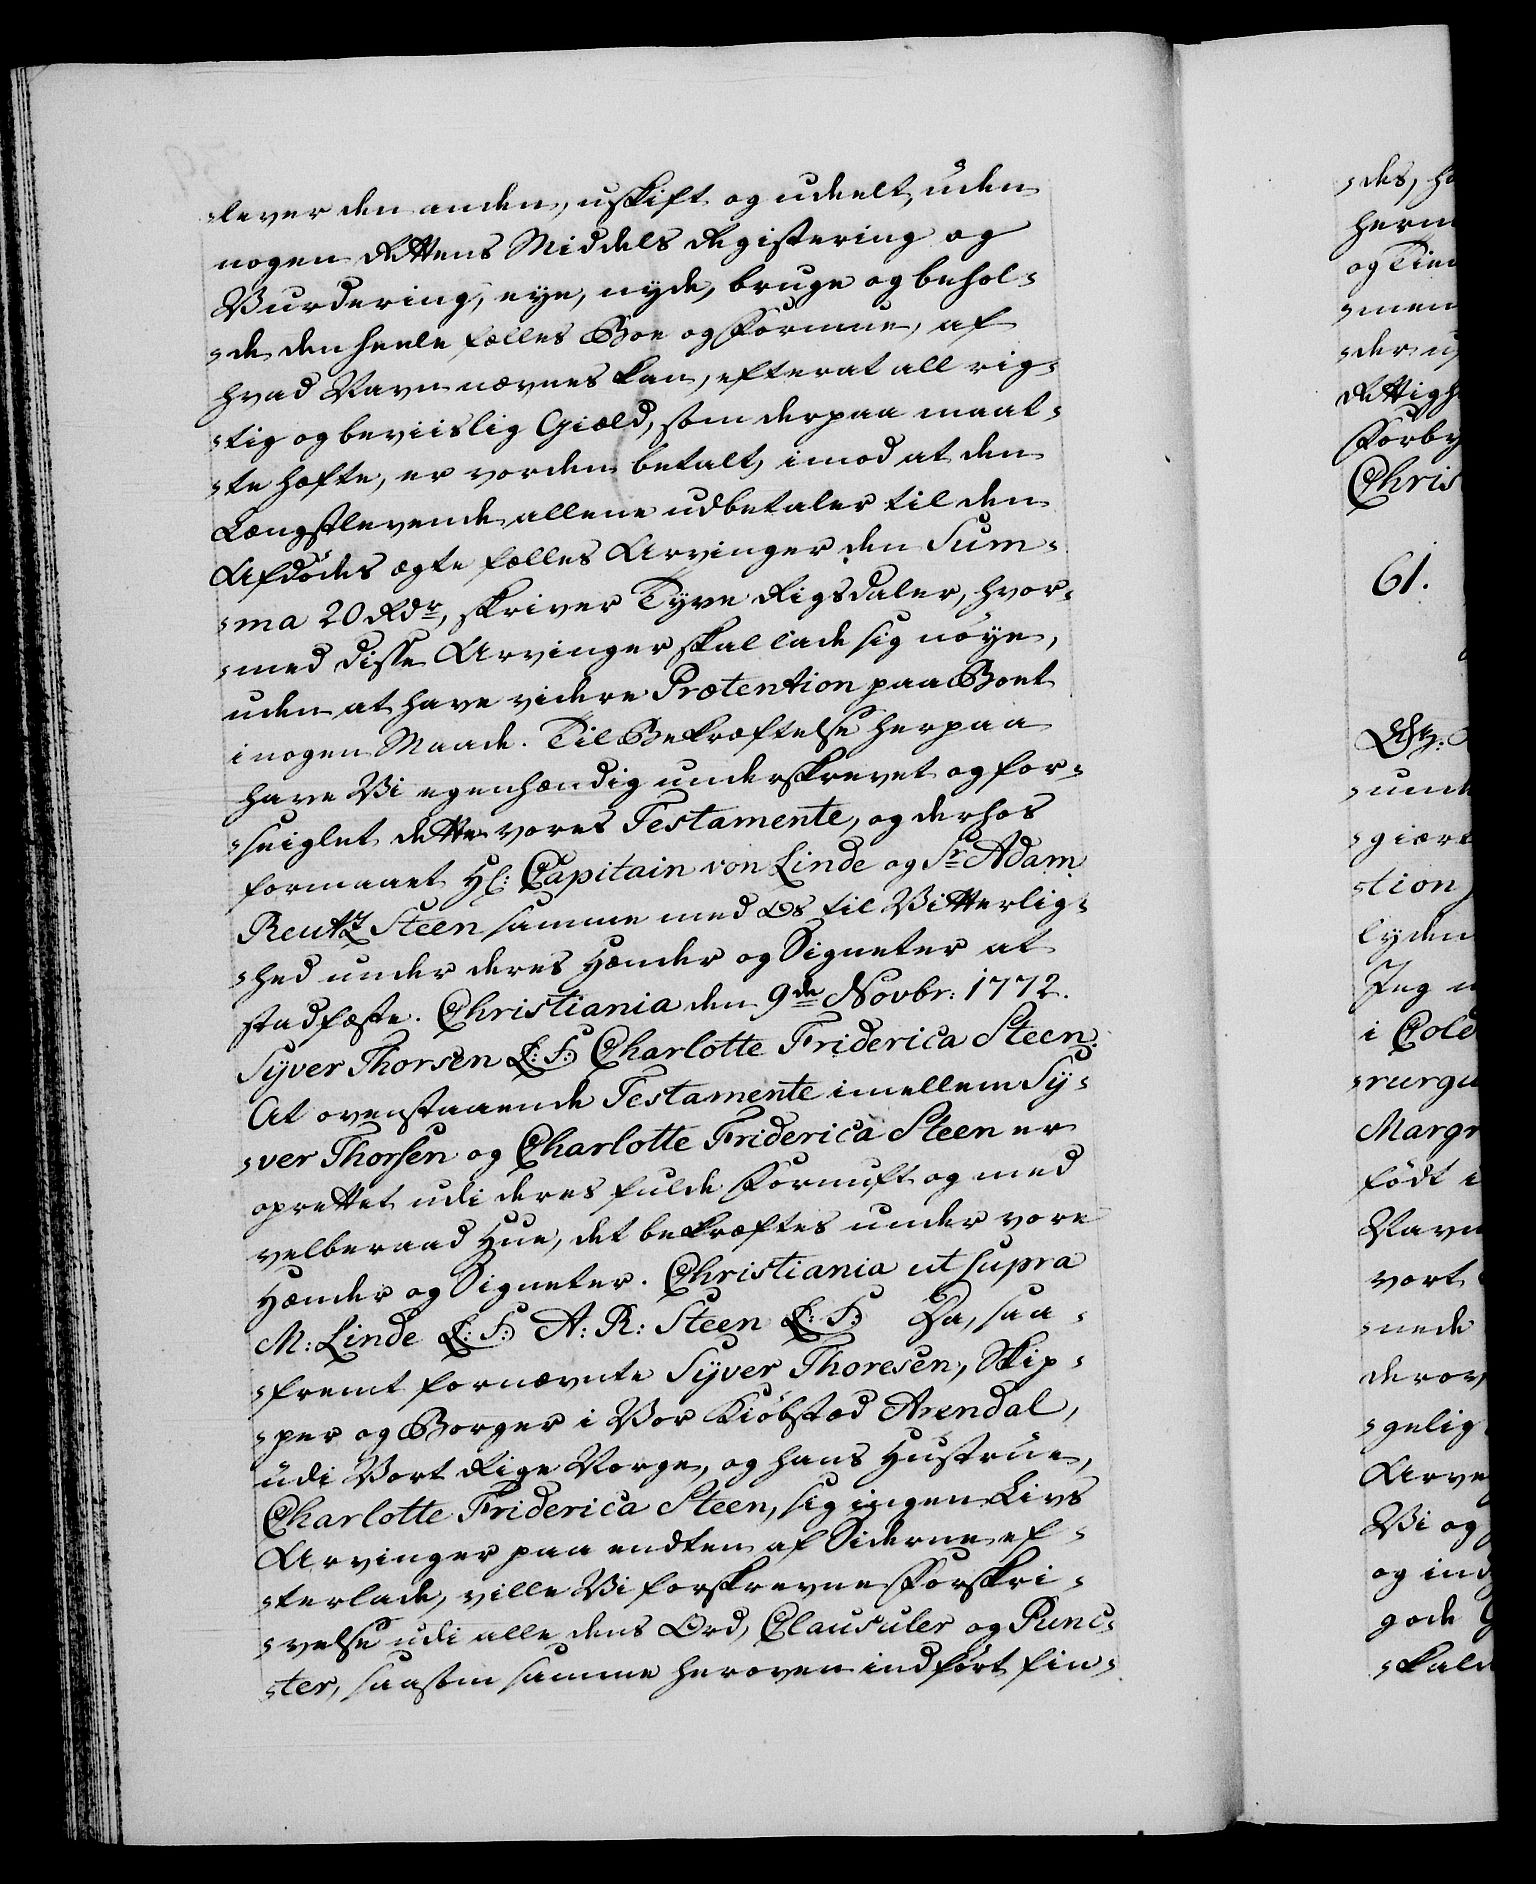 -lever den anden, uskift og udeelt, uden
nogen Rettens Middels Registering og
Vurdering, eye, nyde, bruge og behol-
-de den heele fælles Boe og Formue, af
hvad Navn nævnes kan, efterat all rig-
-tig og beviislig Giæld, som derpaa maat-
-te hæfte, er vorden betalt, imod at den
Længstlevende allene udbetaler til den
Afdødes ægte fælles Arvinger den Sum-
-ma 20 Rdr, skriver Tyve Rigsdaler, hvor-
-med disse Arvinger skal lade sig nøye,
uden at have videre Prætention paa Boet
i nogen Maade. Til Bekræftelse herpaa
have Vi egenhændig underskrevet og for-
-seiglet dette vores Testamente, og derhos
formaaet Hl: Capitain von Linde og Sr Adam
Reutz Steen samme med Os til Vitterlig-
-hed under deres Hænder og Signeter at
stadfæste. Christiania den 9de Novbr: 1772.
Syver Thorsen L: S: Charlotte Friderica Steen.
At ovenstaaende Testamente imellem Sy-
-ver Thorsen og Charlotte Friderica Steen er
oprettet udi deres fulde Fornuft og med
velberaad Hue, det bekræftes under vore
Hænder og Signeter. Christiania ut supra
M: Linde L: S: A: R: Steen L: S: Da, saa-
-fremt fornævnte Syver Thoresen, Skip-
-per og Borger i Vor Kiøbstæd Arendal,
udi Vort Rige Norge, og hans Hustrue,
Charlotte Friderica Steen, sig ingen Livs
Arvinger paa endten af Siderne ef-
-terlade, ville Vi forskrevne Forskri-
-velse udi alle dens Ord, Clausuler og Punc-
-ter, saasom samme heroven indført fin-
-des, h
herm
og Tien
-men
-der u
Rettigh
Forby
Chris
61.
-unde
-giært
-tion
lyden
Jeg
i Cold
-rurgu
Margr
født i
Navn
vort
-nede
derov
-gelig
Arve
Vi og
og ind
gode
-skald